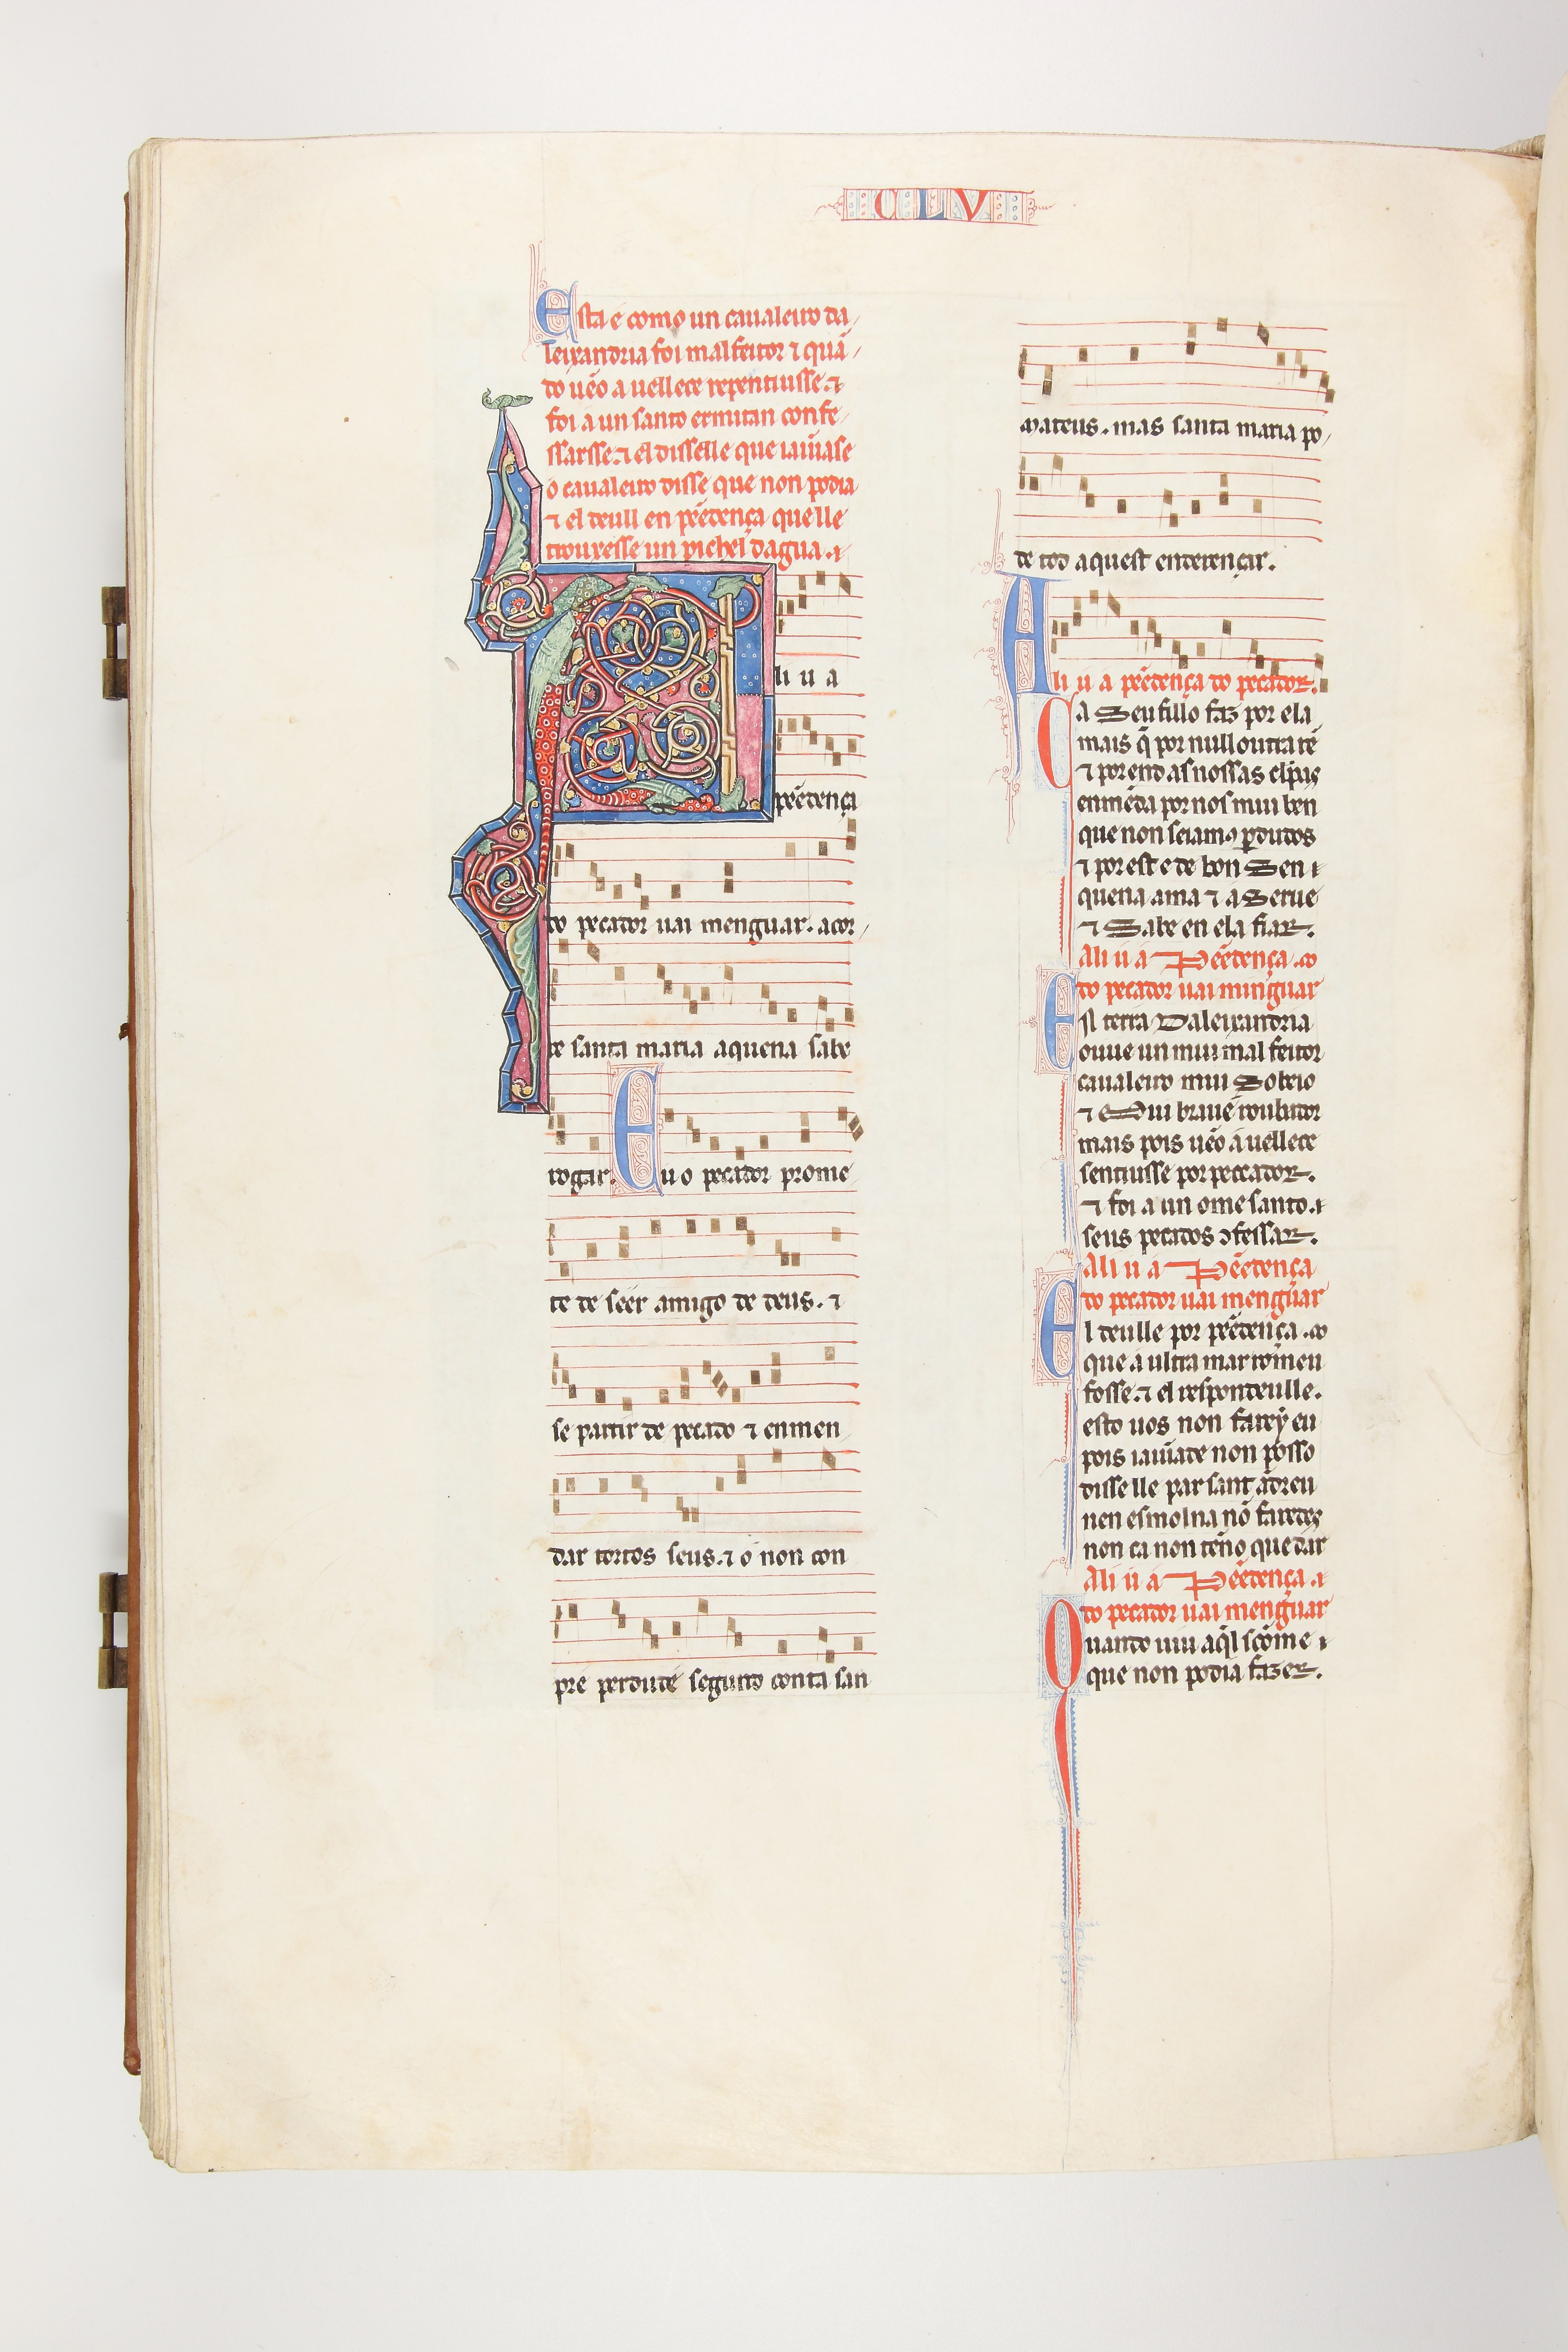 CLV
Esta é como un caualeiro da
leixandria foi malfeitor ⁊ quā
do uẽo a uellece repentiusse ⁊
foi a un santo ermitan confe
ssarsse ⁊ el disselle que iaiũase
o caualeiro disse que non podia
⁊ el deull en pẽedença quelle
trouxesse un pichel dagua.
Ali u a
pẽedença
do pecador uai menguar. acor
de santa maria aquena sabe
rogar. Eu o pecador prome
te de séér amigo de deus. ⁊
se partir de pecado ⁊ enmen
dar tortos seus. ⁊ o non con
pre perdudé segund conta san
Mateus. mas santa maria po
de tod aquest enderençar.
Ali u a pẽedença do pecador.
Ca Seu fillo faz por ela
mais q̃ por null outra rẽ
⁊ porend as nossas clpas
enmẽda por nos mui ben
que non seiamos ꝑdudos
⁊ por est e de bon Sen
quena ama ⁊ a Serue
⁊ Sabe en ela fiar.
Ali u á Pẽedença. co
do pecador uai minguar
En terra Daleixandria
ouue un mui mal feitor
caualeiro mui Soberio
⁊ Mui braué roubador
mais pois uẽo á uellece
sentiusse por peccador.
⁊ foi a un ome santo.
seus pecados ↄfessar.
Ali u á Pẽedença
do pecador uai menguar
El deulle por pẽedença. co
que a ultramar romeu
fosse. ⁊ el respondeulle.
esto uos non farey eu
pois iaiũade non posso
disselle par sant ãdreu
nen esmolna nõ faredes
non ca non teño que dar
Ali u á Pẽedença.
do pecador uai menguar
Quando uiu aq̃l scõme
que non podia fazer.